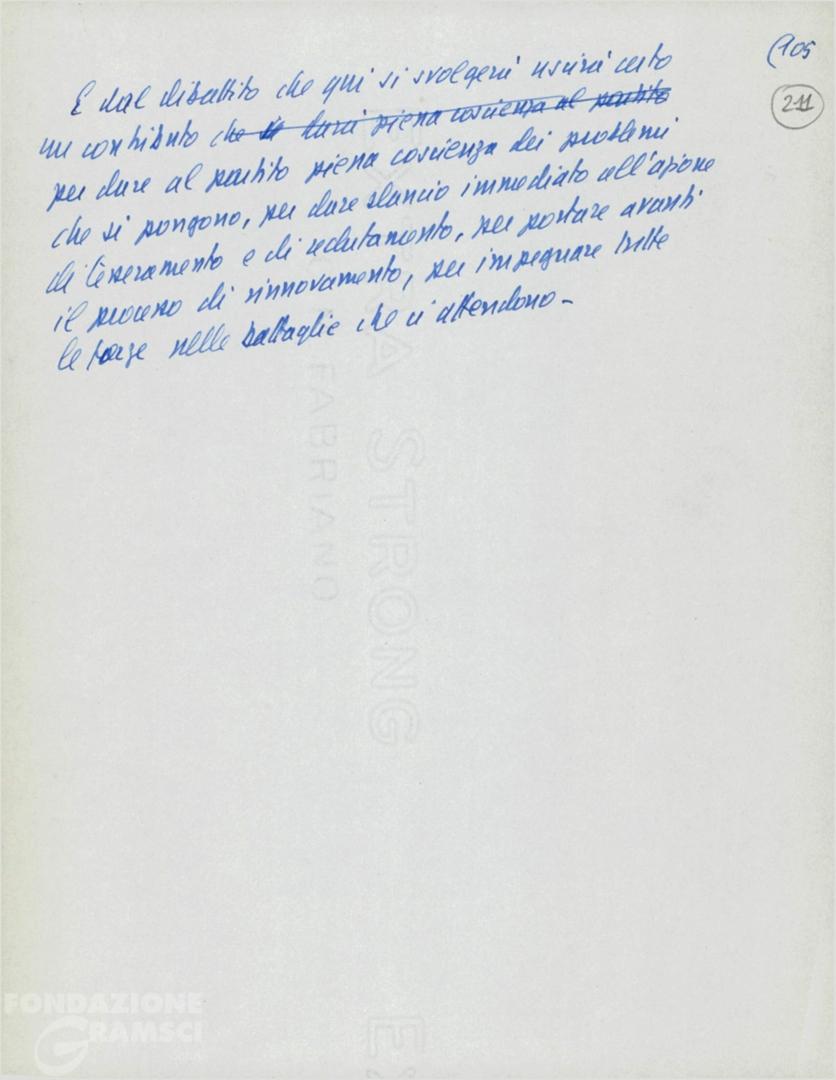 (105
211
E dal dibattito che qui si svolgerà uscirà certo
un contributo che si darà piena coscienza al partito
per dare al partito piena coscienza dei problemi
che si pongono, per dare slancio immediato all'azione
di tesseramento e di reclutamento, per portare avanti
il processo di rinnovamento, per impegnare tutte
le forze nelle battaglie che ci attendono -
EXTRA STRONG
FABRIANO
FONDAZIONE
GRAMSCI
EX